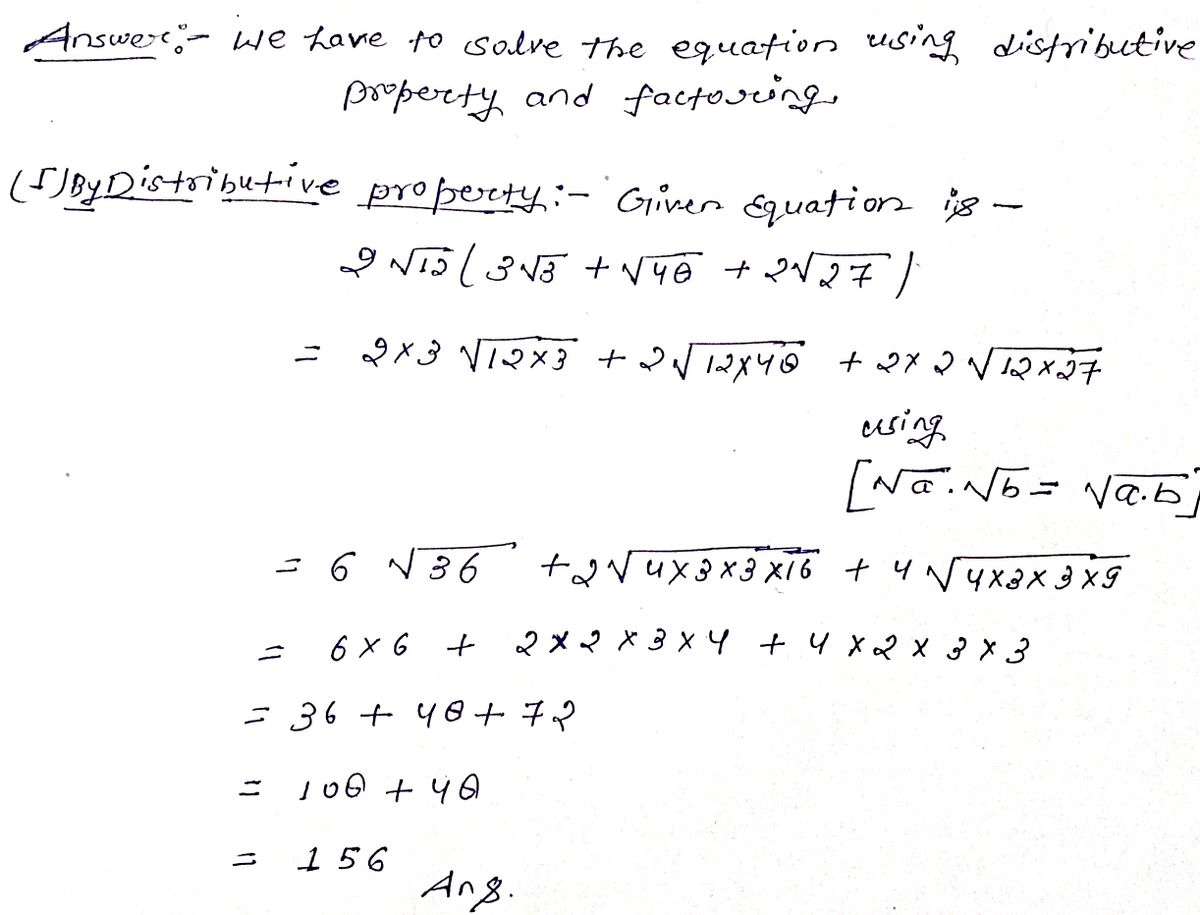 Answer:- We have to solve the equation using distributive
property and factoring.
(I) By Distributive property:- Given Equation is -
2√12 ( 3√3 + √48 + 2√27 )
= 2×3 √12×3 + 2√12×48 + 2×2 √12×27
using
[√a.√b = √a.b]
= 6 √36 + 2√4×3×3×16 + 4√4×3×3×9
= 6×6 + 2×2×3×4 + 4×2×3×3
= 36 + 48 + 72
= 108 + 48
= 156
Ans.